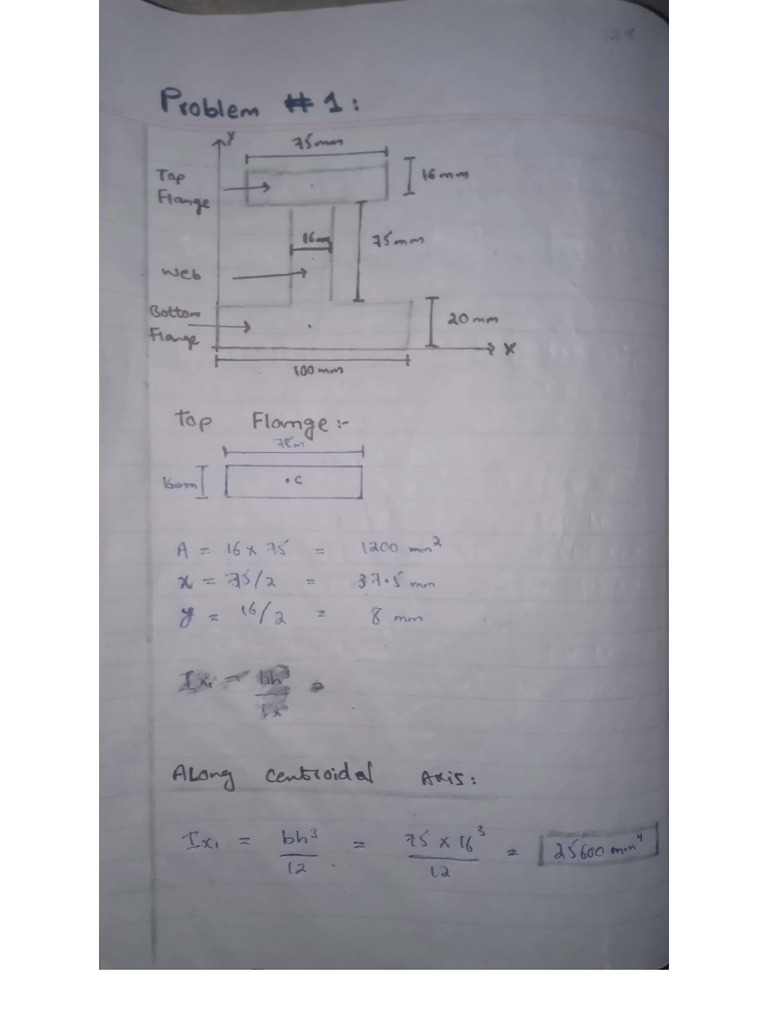 Problem # 1:
Y
75mm
Top
Flange
16 mm
16m
75mm
Web
Bottom
Flange
20 mm
X
100 mm
Top Flange:-
16mm
. C
A = 16 x 75 = 1200 mm²
x = 75/2 = 37.5 mm
y = 16/2 = 8 mm
Ix₁ = bh³
Along Centroidal Axis:
Ix₁ = bh³/12 = 75 x 16³/12 = 25600 mm⁴